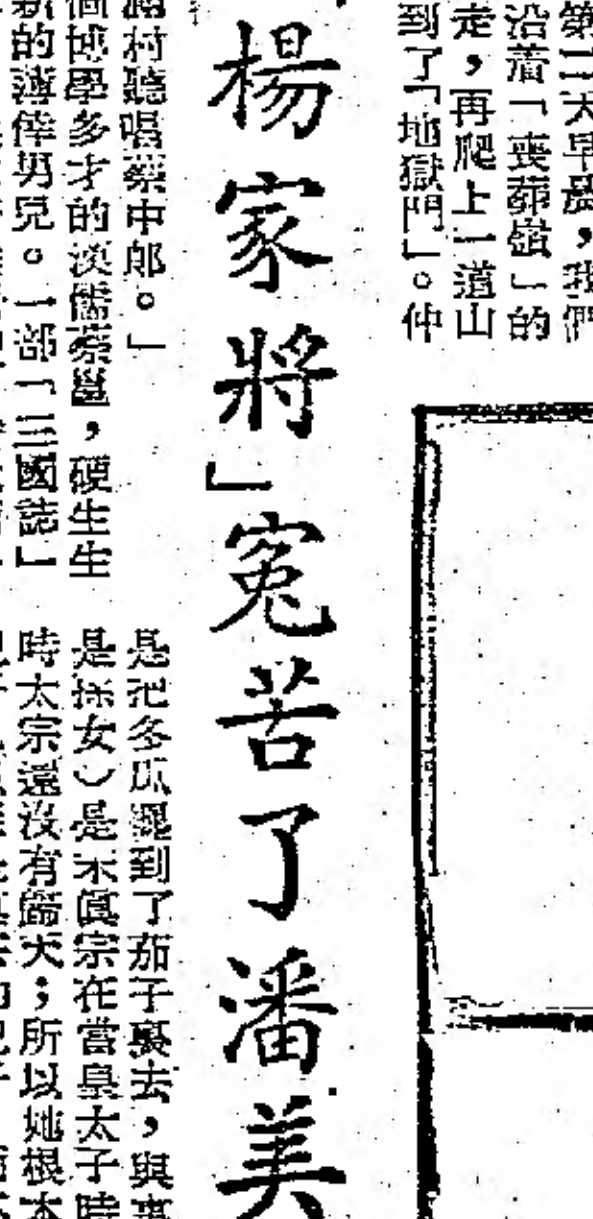 第二天早晨，我們
沿着「喪葬嶺」的
走，再爬上一道山
到了「地獄門」。仲
楊家將」冤苦了潘美
村聽唱蔡中郎。」
個博學多才的漢儒蔡邕，硬生生
的薄倖男兒。一部「三國誌」
是把冬瓜纏到了茄子裏去，與事
是孫女）是宋眞宗在當皇太子時
時太宗還沒有歸天；所以她根本